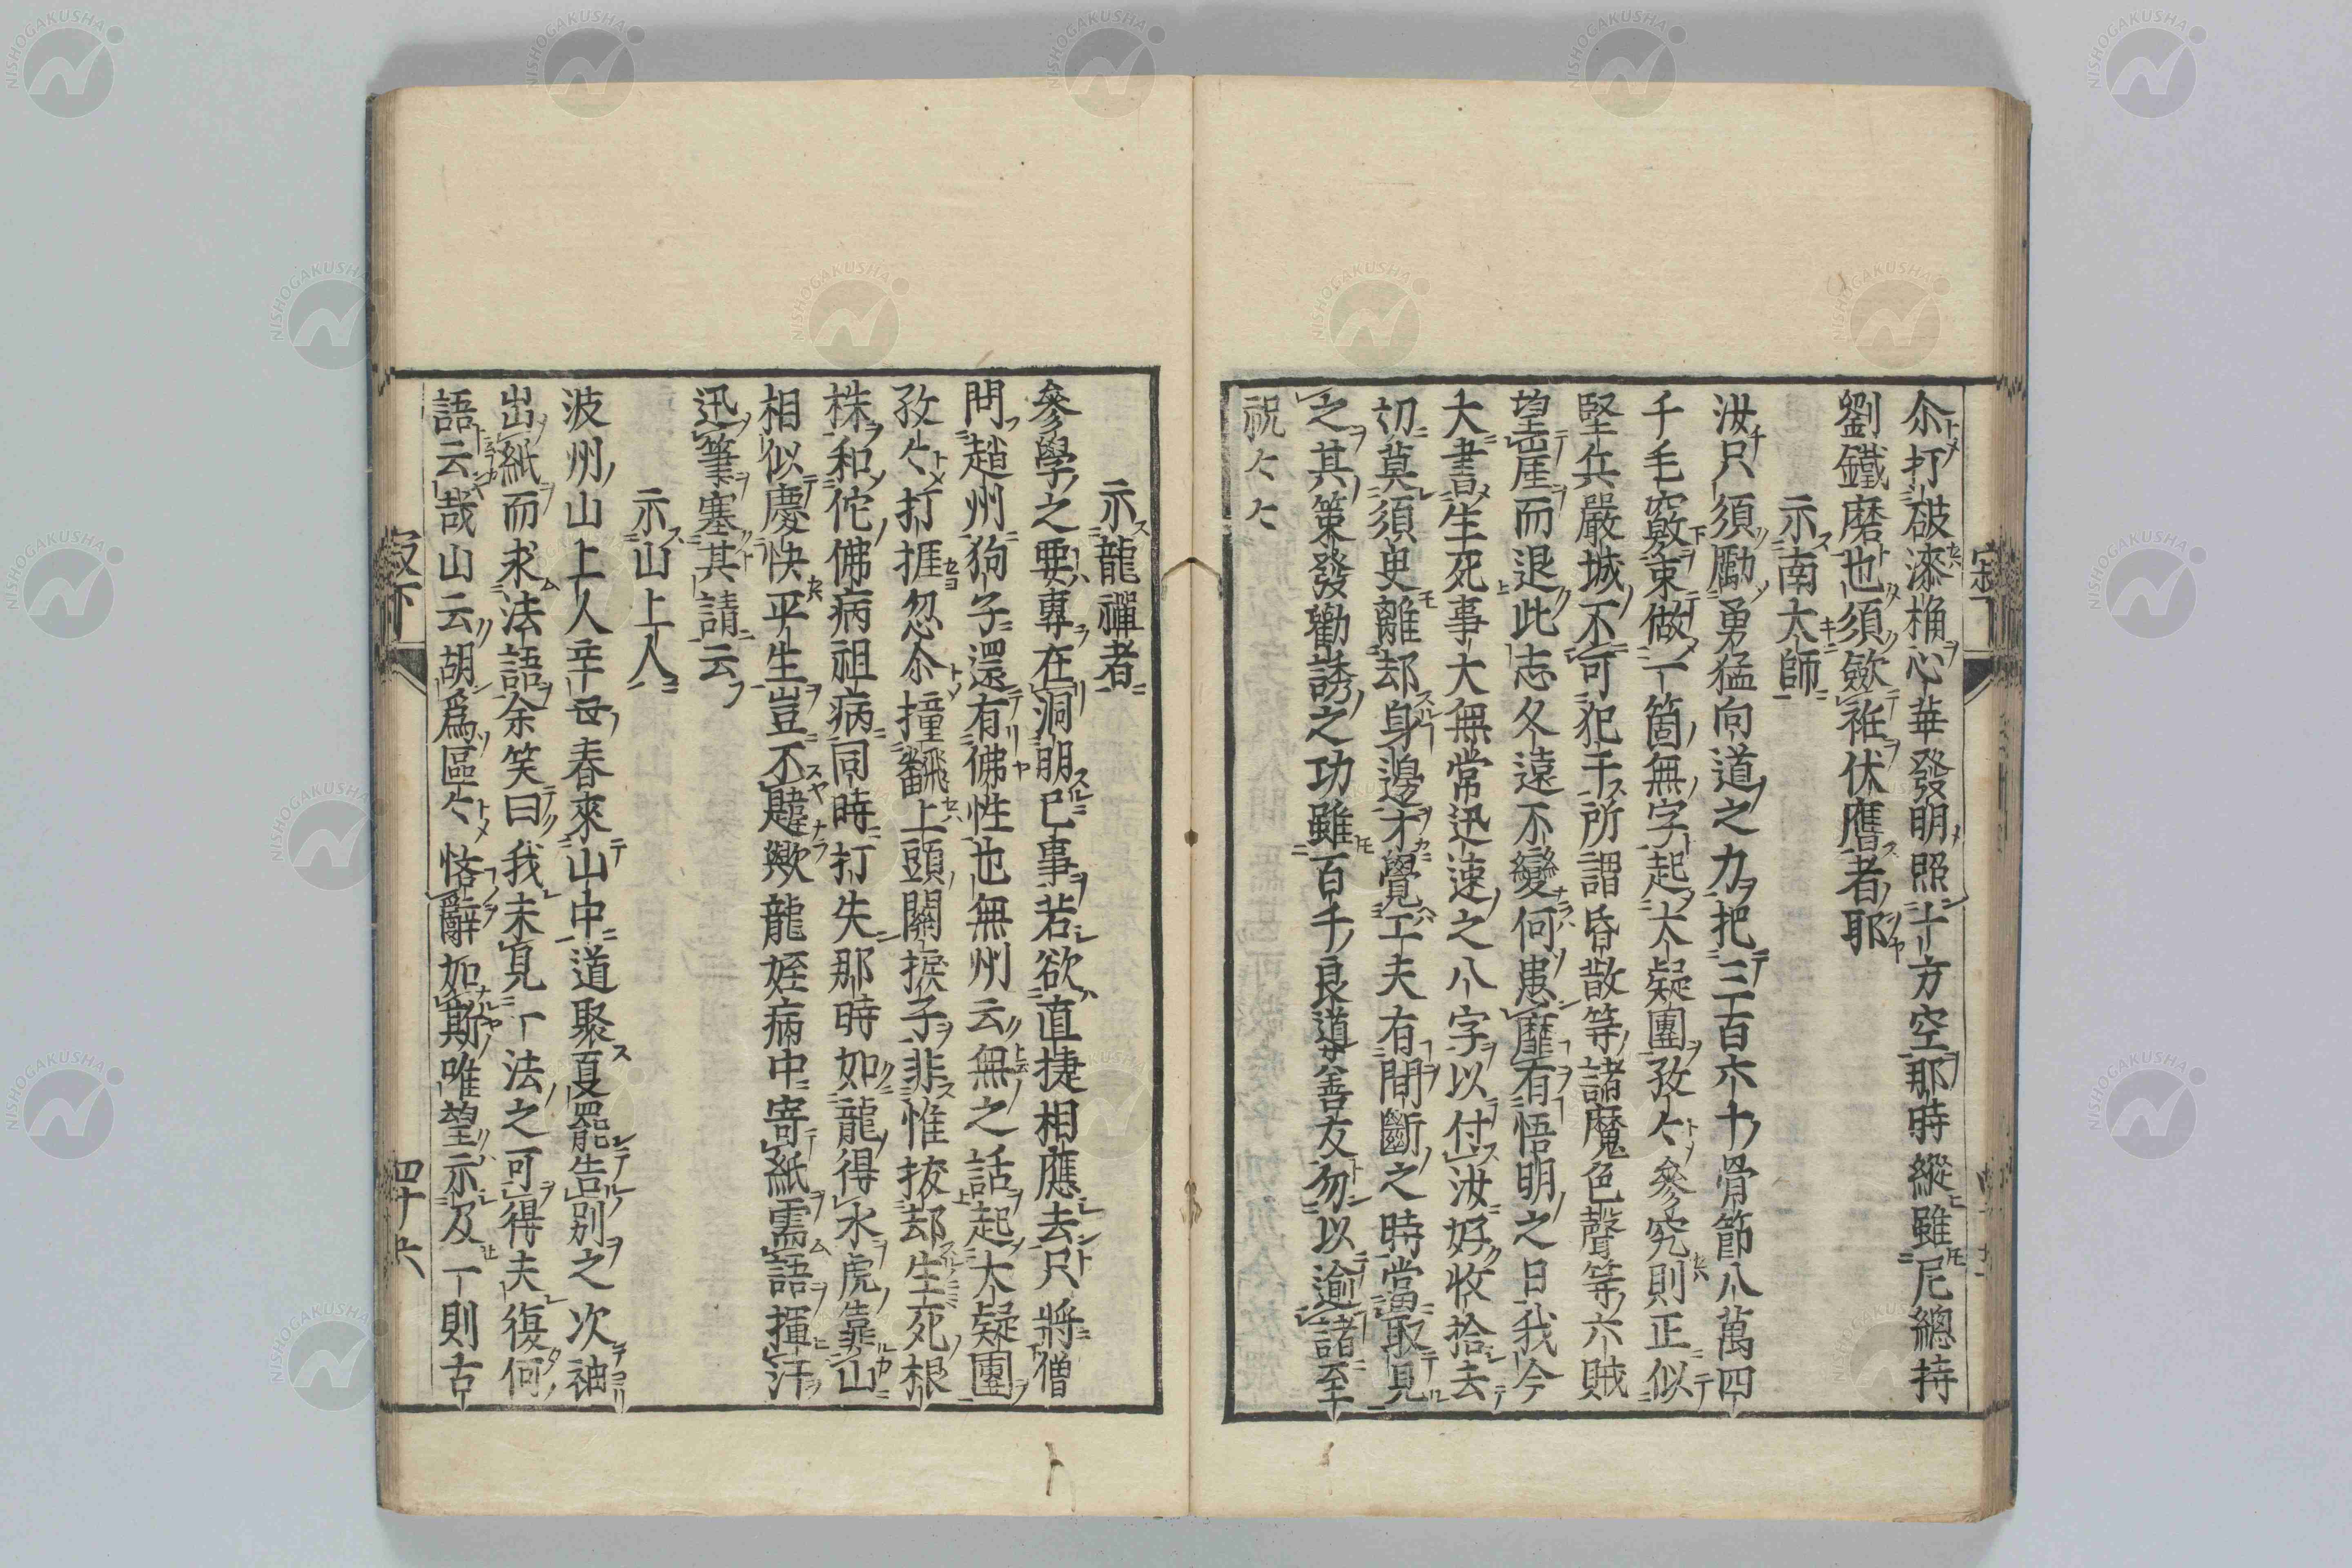 尒打破漆桶心華發明照十方空那時縱雖尼總持
劉鐵磨也須歛衽伏膺者耶
示南大師
汝只須勵勇猛向道之力把三百六十骨節八萬四
千毛竅束做一箇無字起大疑團孜々參究則正似
堅兵嚴城不可犯干所謂昏散等諸魔色聲等六賊
望崖而退此志久遠不變何患靡有悟明之日我今
大書生死事大無常迅速之八字以付汝好收拾去
切莫須臾離却身邊才覺工夫有間斷之時當取見
之其策發勸誘之功雖百千良導善友勿以逾諸至
祝々々
示龍禪者
參學之要專在洞明己事若欲直捷相應去只將僧
問趙州狗子還有佛性也無州云無之話起大疑團
孜々打捱忽尒撞翻上頭關捩子非惟拔却生死根
株和佗佛病祖病同時打失那時如龍得水虎靠山
相似慶快平生豈不韙歟龍姪病中寄紙需語揮汗
迅筆塞其請云
示山上人
波州山上人辛母春來山中道聚夏罷告別之次袖
出紙而求法語余笑曰我未見一法之可得夫復何
語云哉山云胡爲區々悋辭如斯唯望示及一則古
寂下
四十六